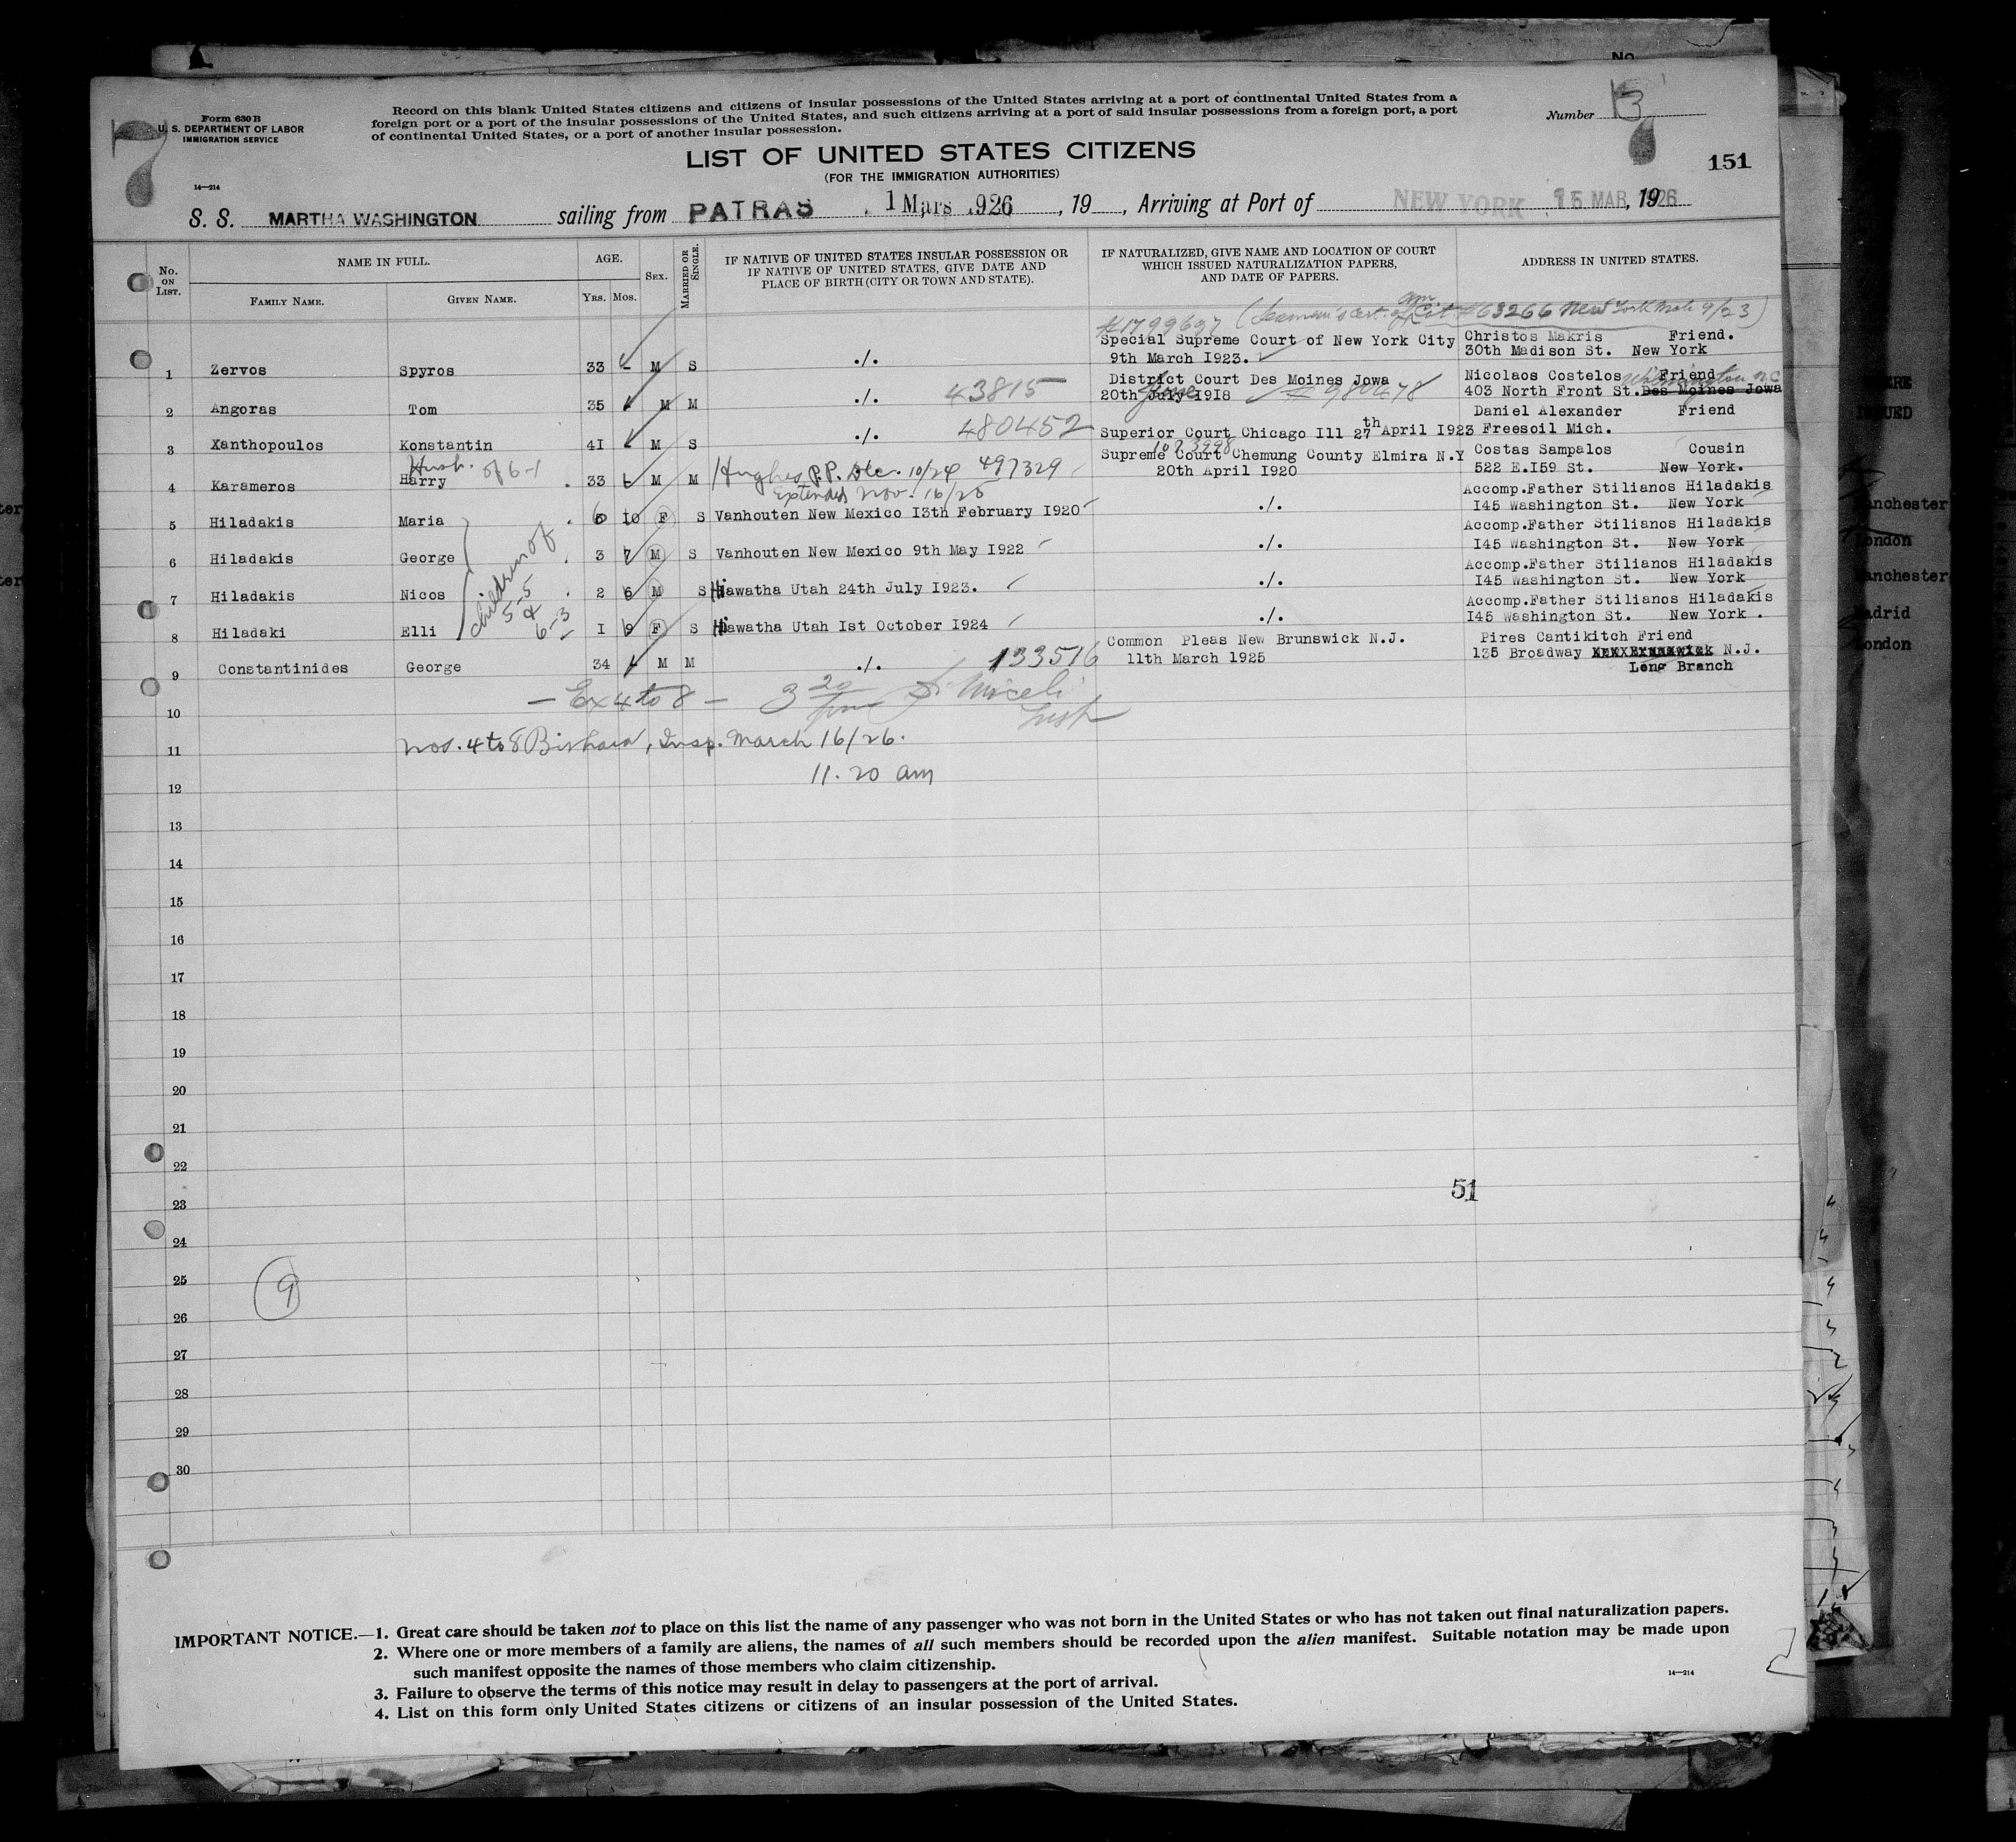 No.
Form 630 B
U. S. DEPARTMENT OF LABOR
IMMIGRATION SERVICE
14—214
Record on this blank United States citizens and citizens of insular possessions of the United States arriving at a port of continental United States from a
foreign port or a port of the insular possessions of the United States, and such citizens arriving at a port of said insular possessions from a foreign port, a port
of continental United States, or a port of another insular possession.
Number 3
7
7
151
LIST OF UNITED STATES CITIZENS
(FOR THE IMMIGRATION AUTHORITIES)
S. S. MARTHA WASHINGTON sailing from PATRAS, 1 Mars 926, 19, Arriving at Port of NEW YORK 15 MAR, 1926
No. ON LIST.
NAME IN FULL.
FAMILY NAME.
GIVEN NAME.
AGE.
YRS. MOS.
SEX.
MARRIED OR SINGLE.
IF NATIVE OF UNITED STATES INSULAR POSSESSION OR
IF NATIVE OF UNITED STATES, GIVE DATE AND
PLACE OF BIRTH (CITY OR TOWN AND STATE).
IF NATURALIZED, GIVE NAME AND LOCATION OF COURT
WHICH ISSUED NATURALIZATION PAPERS,
AND DATE OF PAPERS.
ADDRESS IN UNITED STATES.
#1799697 (Seaman's Cert. of Am Cit #63266 New York Mch 9/23)
Special Supreme Court of New York City Christos Makris Friend.
1 Zervos Spyros 33 - M S ./. 9th March I923. 30th Madison St. New York
43815 District Court Des Moines Jowa Nicolaos Costelos Friend Wilmington N.C.
2 Angoras Tom 35 M M ./. 20th July I9I8 June # 980478 403 North Front St. Des Moines Jowa
480452 Daniel Alexander Friend
3 Xanthopoulos Konstantin 4I M S ./. Superior Court Chicago Ill 27th April I923 Freesoil Mich.
Husb. of 6-1 1023998 Supreme Court Chemung County Elmira N.Y Costas Sampalos Cousin
4 Karameros Harry 33 M M Hughes P.P. Dec. 10/24 497329 20th April I920 522 E.I59 St. New York.
Extended Nov. 16/25
Accomp.Father Stilianos Hiladakis
5 Hiladakis Maria 6 I0 F S Vanhouten New Mexico I3th February I920 ./. I45 Washington St. New York
Accomp.Father Stilianos Hiladakis
6 Hiladakis George 3 7 M S Vanhouten New Mexico 9th May I922 ./. I45 Washington St. New York
Accomp.Father Stilianos Hiladakis
7 Hiladakis Nicos 2 6 M S Hiawatha Utah 24th July I923. ./. I45 Washington St. New York
Accomp.Father Stilianos Hiladakis
8 Hiladaki Elli I 9 F S Hiawatha Utah Ist October I924 ./. I45 Washington St. New York .
children of 5-5 & 6-3
Common Pleas New Brunswick N.J. Pires Cantikitch Friend
9 Constantinides George 34 M M ./. 133516 11th March 1925 135 Broadway New Brunswick N.J.
Long Branch
— Ex 4 to 8 — 3 20 pm S. Miceli
Insp
10
Nos. 4 to 8 Bishara, Insp. March 16/26.
11
11.20 am
12
13
14
15
16
17
18
19
20
21
22
51
23
24
25
9
26
27
28
29
30
IMPORTANT NOTICE.—1. Great care should be taken not to place on this list the name of any passenger who was not born in the United States or who has not taken out final naturalization papers.
2. Where one or more members of a family are aliens, the names of all such members should be recorded upon the alien manifest. Suitable notation may be made upon
such manifest opposite the names of those members who claim citizenship.
3. Failure to observe the terms of this notice may result in delay to passengers at the port of arrival.
4. List on this form only United States citizens or citizens of an insular possession of the United States.
14—214